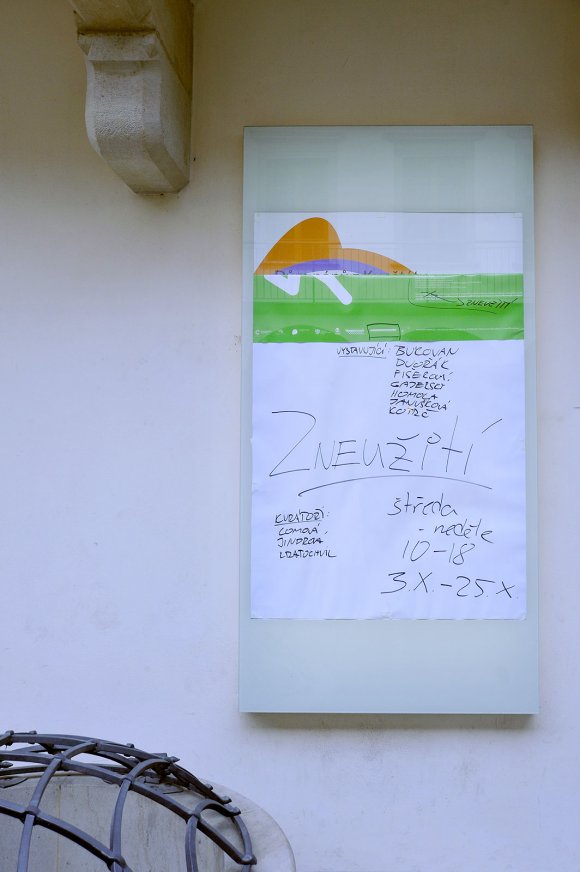 ZNEUŽITÍ
VYSTAVUJÍCÍ: BUKOVAN
DVOŘÁK
FIŠEROVÁ
HOMOLA
JANUŠKOVÁ
ZNEUŽITÍ
KURÁTOŘI:
LOMOVÁ
JINDROVÁ
KRATOCHVIL
středa
- neděle
10-18
3.X.-25.X.